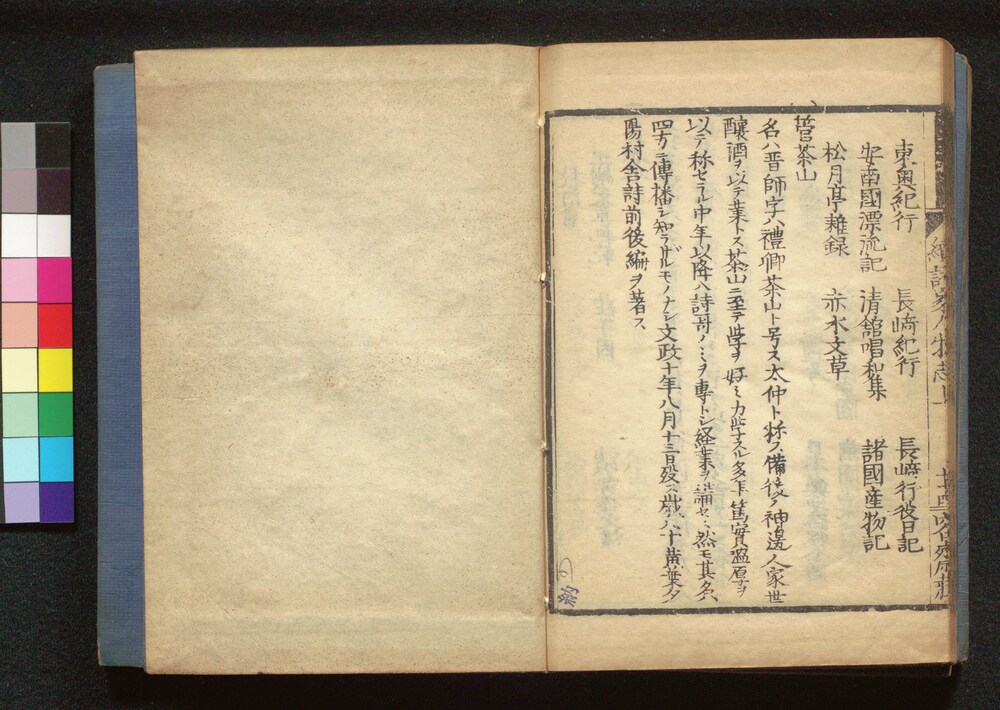 東奥紀行　長﨑紀行　長﨑行役日記
安南國漂流記　清館唱和集　諸國産物記
松月亭雜録　赤水文草
菅茶山
名ハ晋師字ハ禮卿茶山ト号ス太仲ト称ス備後ノ神邊人家世
釀酒ヲ以テ業トス茶山ニ至テ学ヲ好ミ力学スル多年篤實温厚ヲ
以テ称セラル中年以降ハ詩哥ノミヲ專トシ経業ヲ講セス然モ其名ハ
四方ニ傳播シ知ラザルモノナシ文政十年八月十三日殁ス歳八十黄葉夕
陽村舎詩前後編ヲ著ス
續諸家人物志上